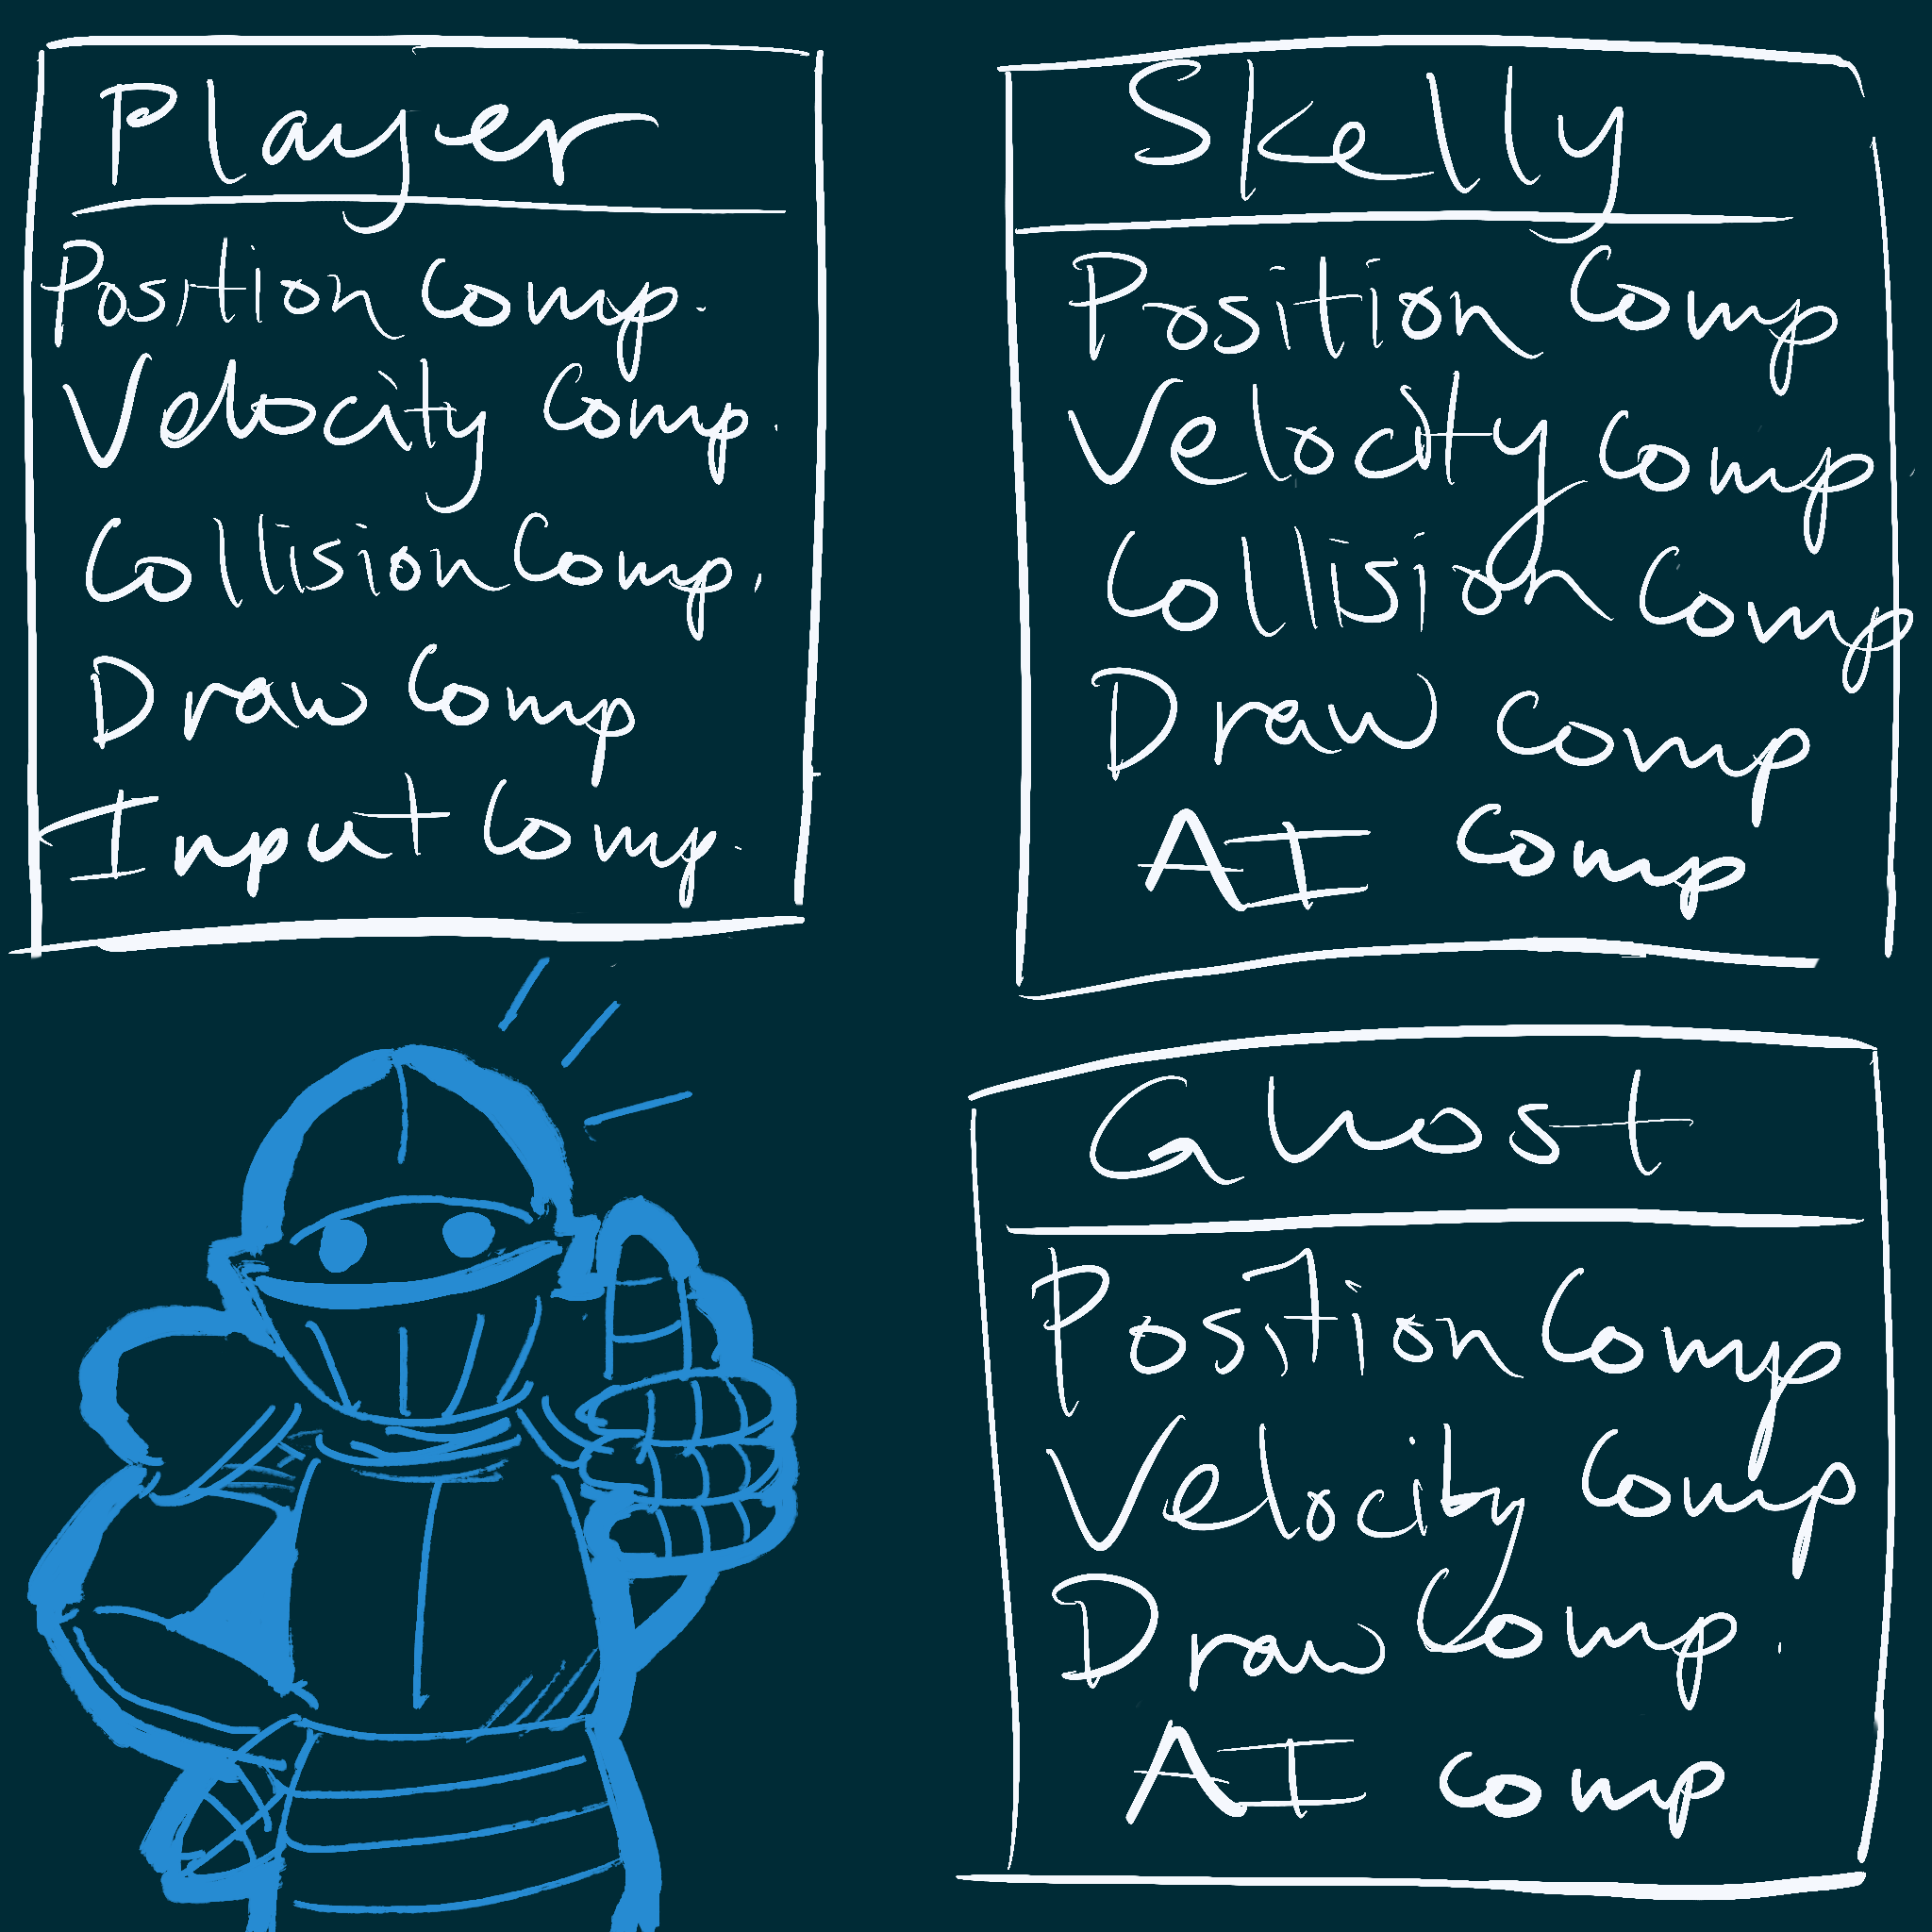 Player
Position Comp.
Velocity Comp.
Collision Comp.
Draw Comp
Input Comp.
Skelly
Position Comp
Velocity Comp
Collision Comp
Draw Comp
AI Comp
Ghost
Position Comp
Velocity Comp
Draw Comp.
AI Comp